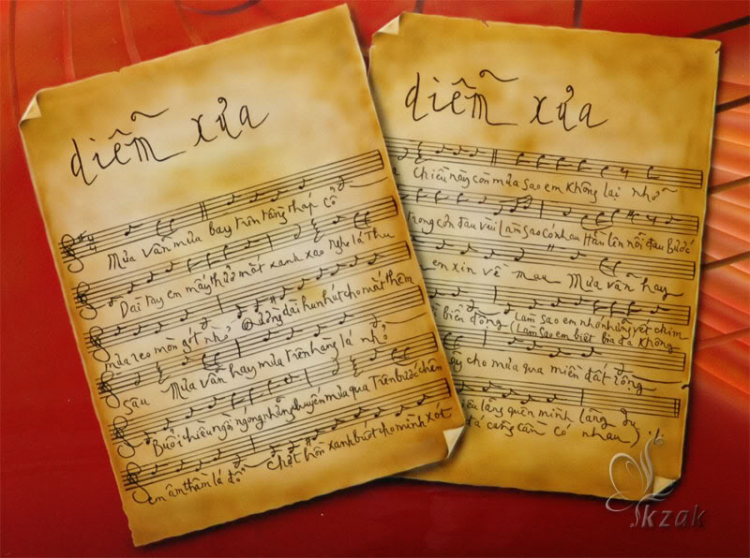 diễm xưa
Mưa vẫn mưa bay trên tầng tháp cổ
Dài tay em mấy thuở mắt xanh xao Nghe lá Thu
mưa reo mòn gót nhỏ Đường dài hun hút cho mắt thêm
sâu Mưa vẫn hay mưa Trên hàng lá nhỏ
Buổi chiều ngồi ngóng những chuyến mưa qua Trên bước chân
em âm thầm lá đổ Chợt hồn xanh buốt cho mình xót
diễm xưa
Chiều này còn mưa sao em Không lại nhớ
trong cơn đau vùi Làm sao có nhau Hằn lên nỗi đau Bước
em xin về mau Mưa vẫn hay
biển động Làm sao em nhớ những vết chim
(Làm sao em biết bia đá không
cho mưa qua miền đất rộng
lãng quên mình lãng du
đá cũng cần có nhau)
kzak